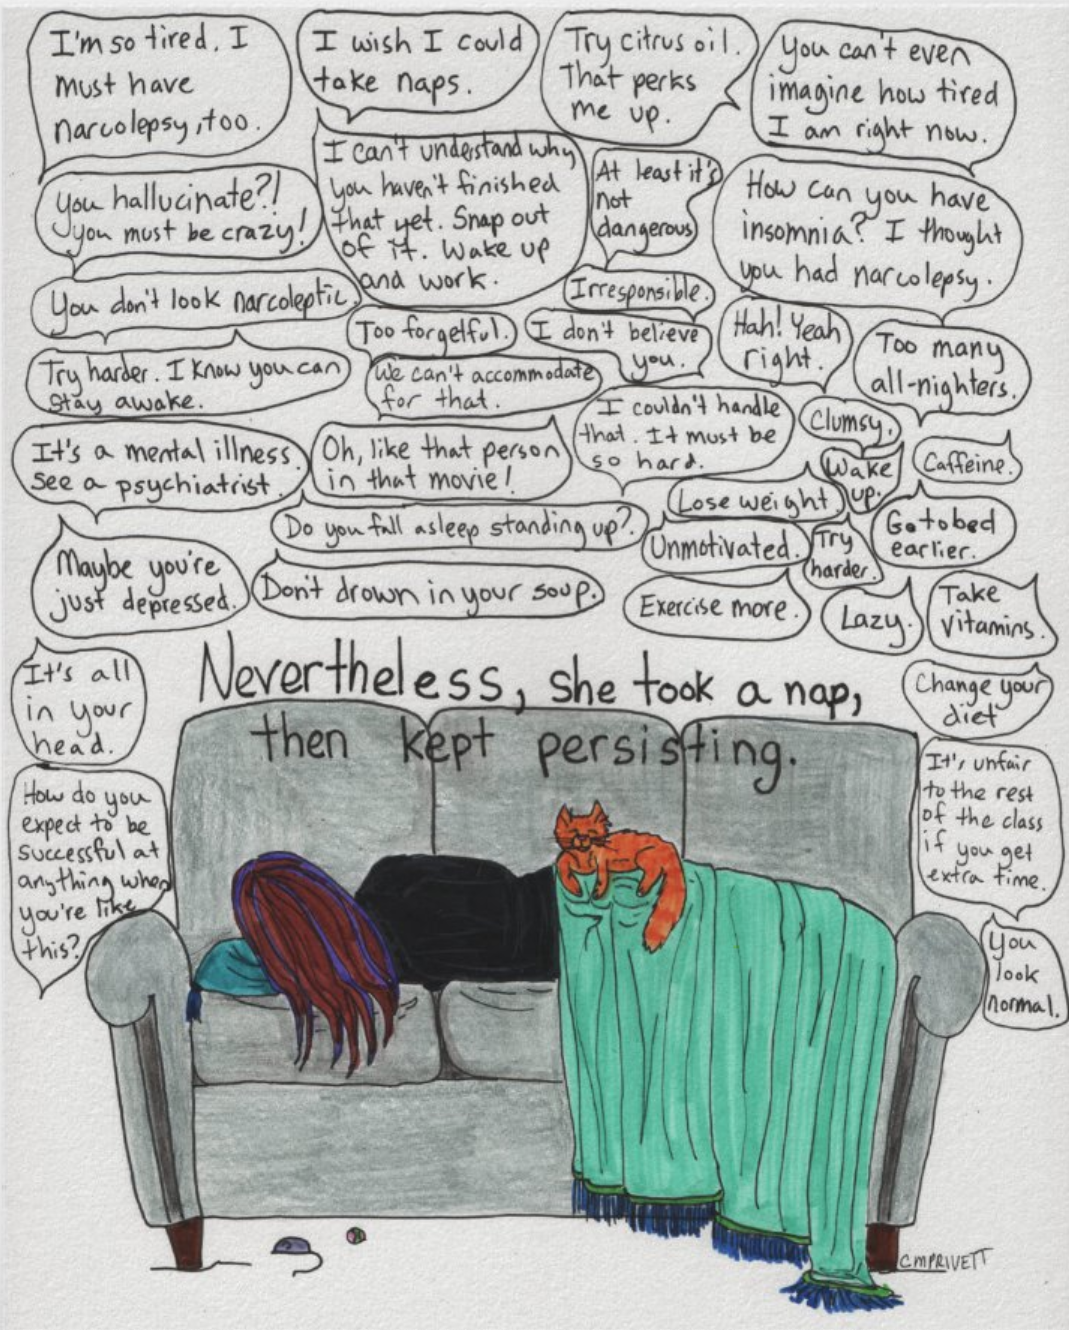 I'm so tired. I
must have
narcolepsy, too.
I wish I could
take naps.
Try citrus oil.
That perks
me up.
You can't even
imagine how tired
I am right now.
You hallucinate?!
you must be crazy!
I can't understand why
you haven't finished
that yet. Snap out
of it. Wake up
and work.
At least it's
not
dangerous
How can you have
insomnia? I thought
you had narcolepsy.
You don't look narcoleptic.
Irresponsible.
Too forgetful.
I don't believe
you.
Hah! Yeah
right.
Too many
all-nighters.
Try harder. I know you can
stay awake.
We can't accommodate
for that.
I couldn't handle
that. It must be
so hard.
Clumsy.
It's a mental illness.
See a psychiatrist.
Oh, like that person
in that movie!
Wake
up.
Caffeine.
Lose weight.
Do you fall asleep standing up?
Unmotivated.
Try
harder.
Go to bed
earlier.
Maybe you're
just depressed.
Don't drown in your soup.
Exercise more.
Lazy.
Take
vitamins.
It's all
in your
head.
Nevertheless, she took a nap,
then kept persisting.
Change your
diet
How do you
expect to be
successful at
anything when
you're like
this?
It's unfair
to the rest
of the class
if you get
extra time.
You
look
normal.
CMPRIVETT